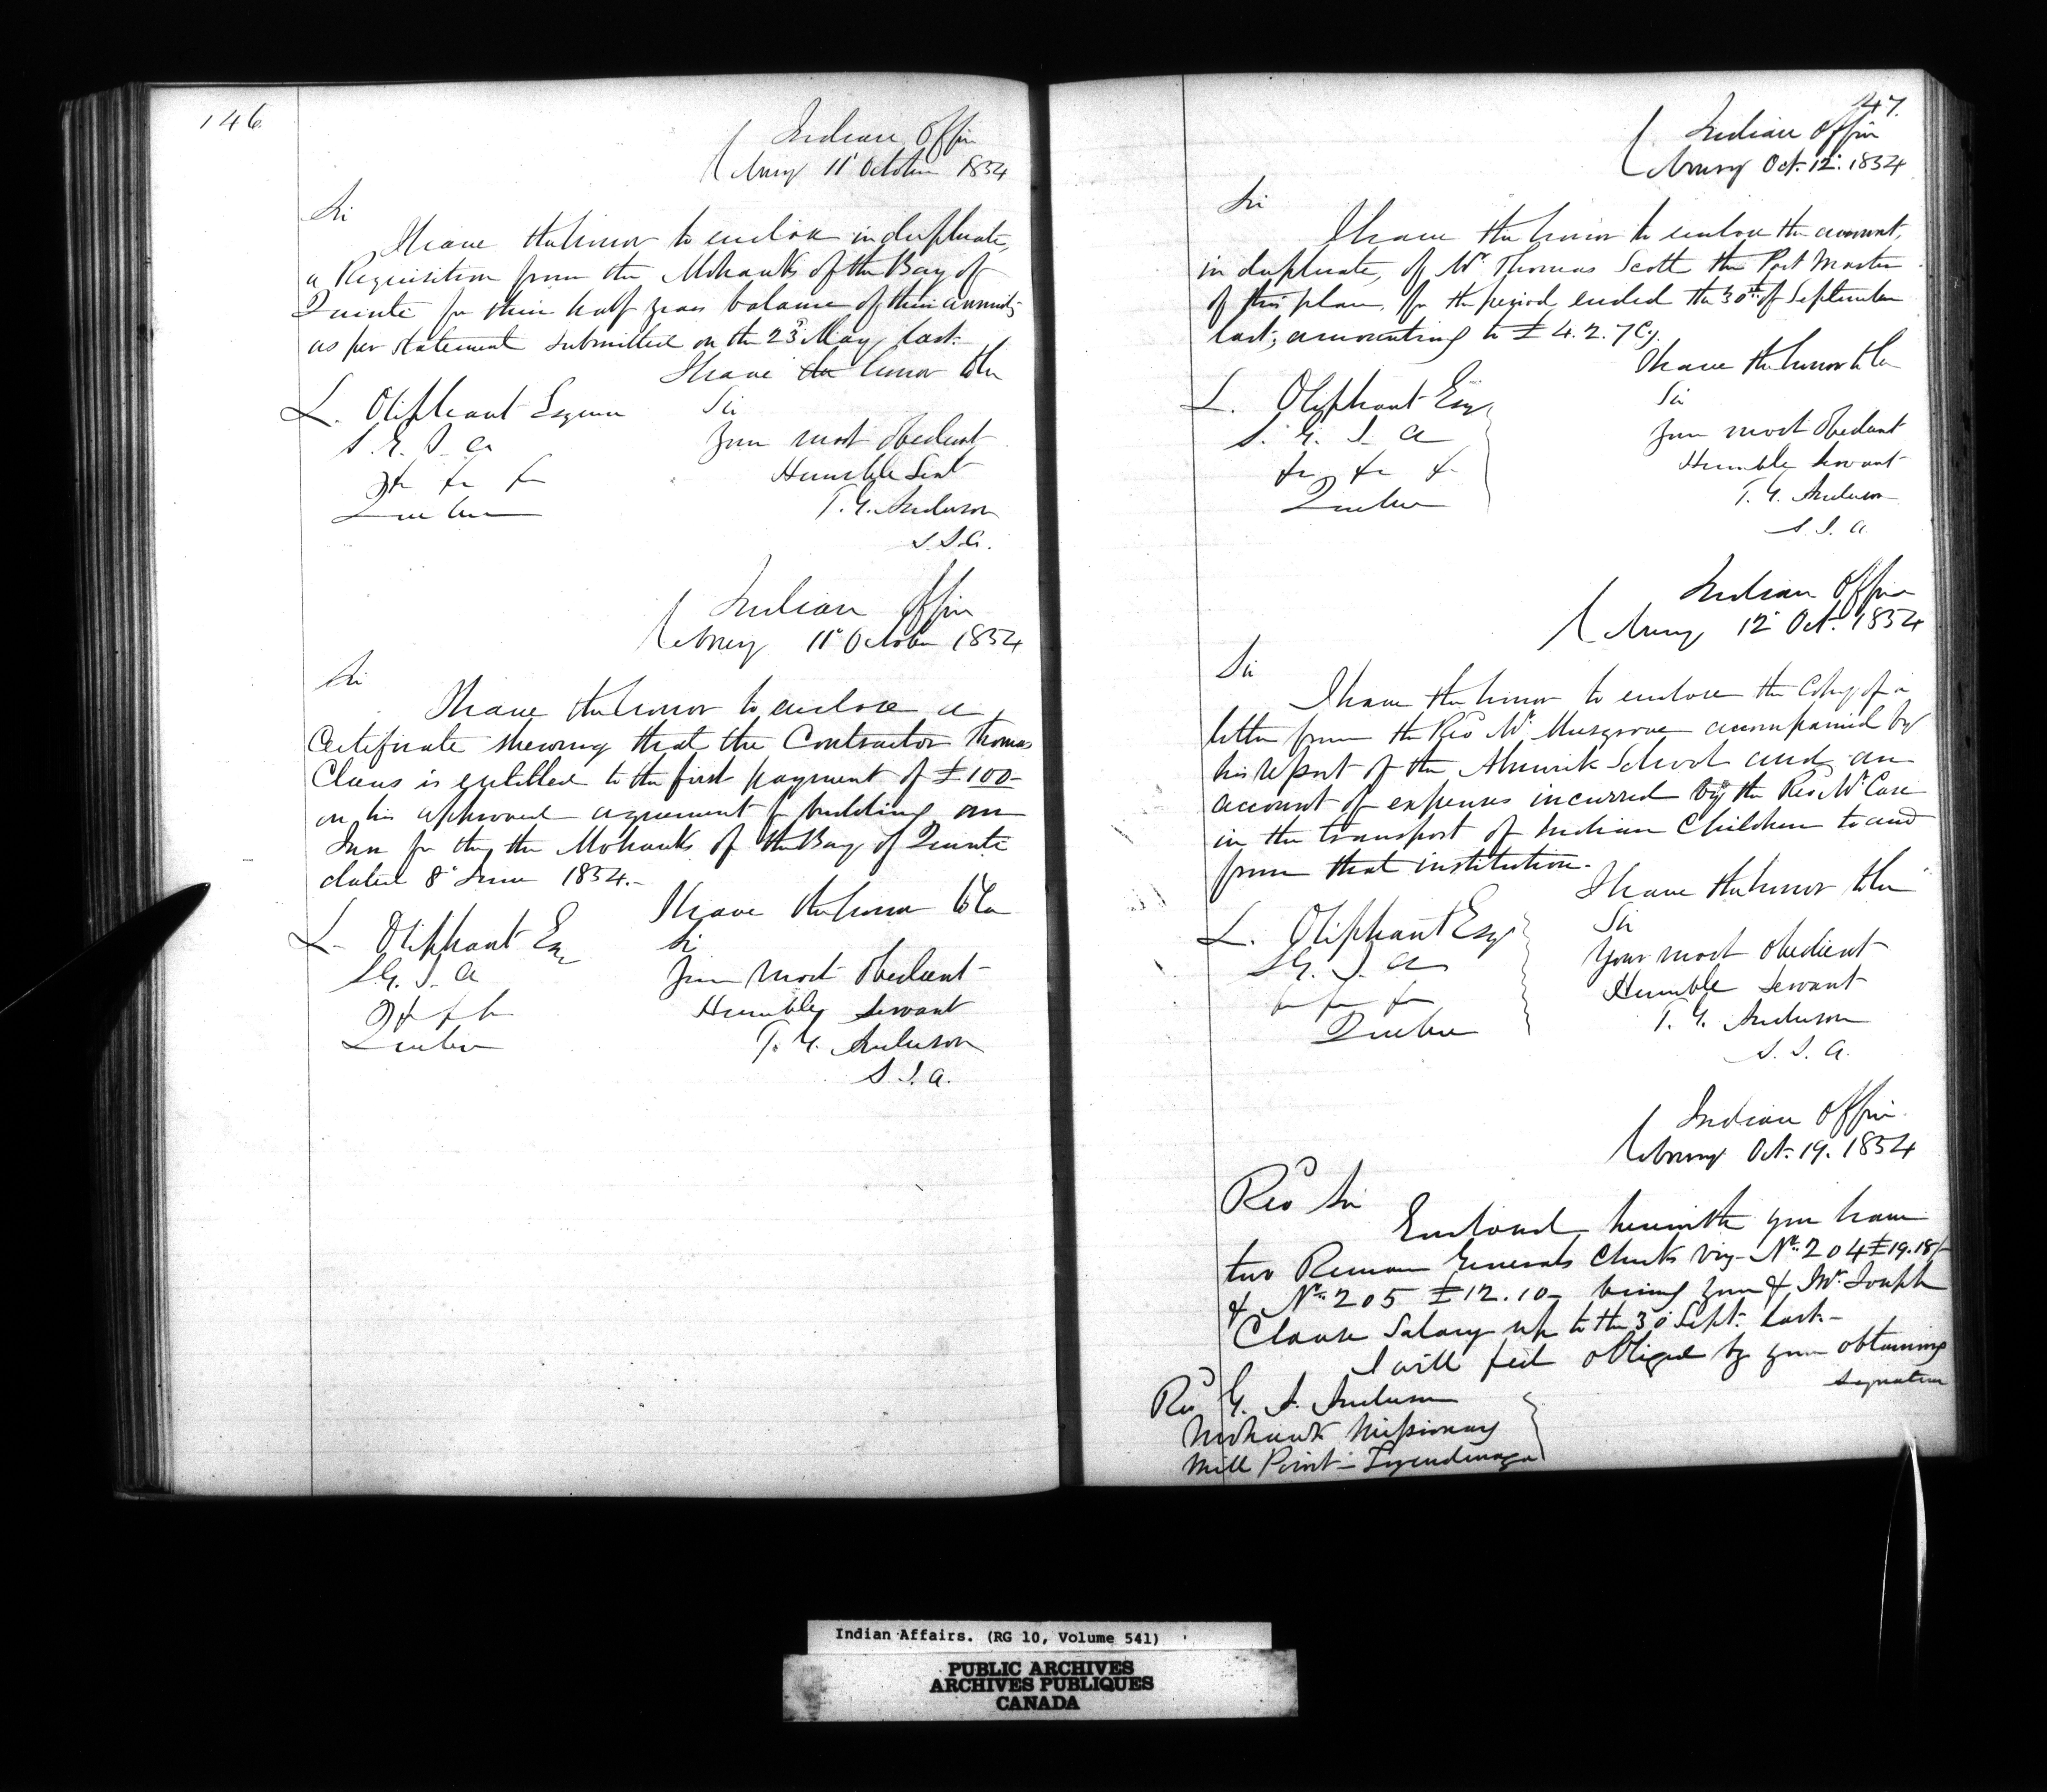 146.
Indian Office
Cobourg 11th October 1854
Sir
I have the honor to enclose in duplicate,
a Requisition from the Mohawks of the Bay of
Quinte for their half years balance of their annuity
as per statement submitted on the 23d May last.
I have the honor to be
L. Oliphant Esquire
Sir
S. G. I. A
Your most obedient
&c &c &c
Humble Servt
Quebec
T. G. Anderson
S. I. A.
Indian Office
Cobourg 11th October 1854
Sir
I have the honor to enclose a
Certificate shewing that the Contractor Thomas
Claus is entitled to the first payment of £100-
on his approved agreement for building an
Inn for the Mohawks of the Bay of Quinte
dated 8th June 1854.-
I have the honor to be
L. Oliphant Esq
Sir
S.G. I. A
Your most obedient
&c &c &c
Humble Servant
Quebec
T. G. Anderson
S. I. A.
147.
Indian Office
Cobourg Oct. 12th. 1854
Sir
I have the honor to enclose the account,
in duplicate, of Mr. Thomas Scott the Post Master
of this place, for the period ended the 30th of September
last; amounting to £4.2.7 Cy.
I have the honor to be
L. Oliphant Esq
Sir
S. G. I. A
Your most obedient
&c &c &c
Humble servant
Quebec
T. G. Anderson
S. I. A.
Indian Office
Cobourg 12th Oct. 1854
Sir
I have the honor to enclose the Copy of a
letter from the Revd Mr. Musgrove accompanied by
his report of the Alnwick School and an
account of expenses incurred by the Revd Mr Case
in the transport of Indian Children to and
from that institution.-
I have the honor to be
L. Oliphant Esqr
Sir
S.G. I. A
Your most obedient
&c &c &c
Humble servant
Quebec
T. G. Anderson
S. I. A.
Indian Office
Cobourg Oct. 19. 1854
Revd Sir
Enclosed herewith you have
two Receiver Generals Checks viz- No. 204 £19.18/-
& No. 205 £12.10- being your & Mr. Joseph
Clause Salary up to the 30th Sept. last.-
I will feel obliged by your obtaining
signature
Revd G. A. Anderson
Mohawk Missionary
Mill Point - Tyendinaga
Indian Affairs. (RG 10, Volume 541)
PUBLIC ARCHIVES
ARCHIVES PUBLIQUES
CANADA